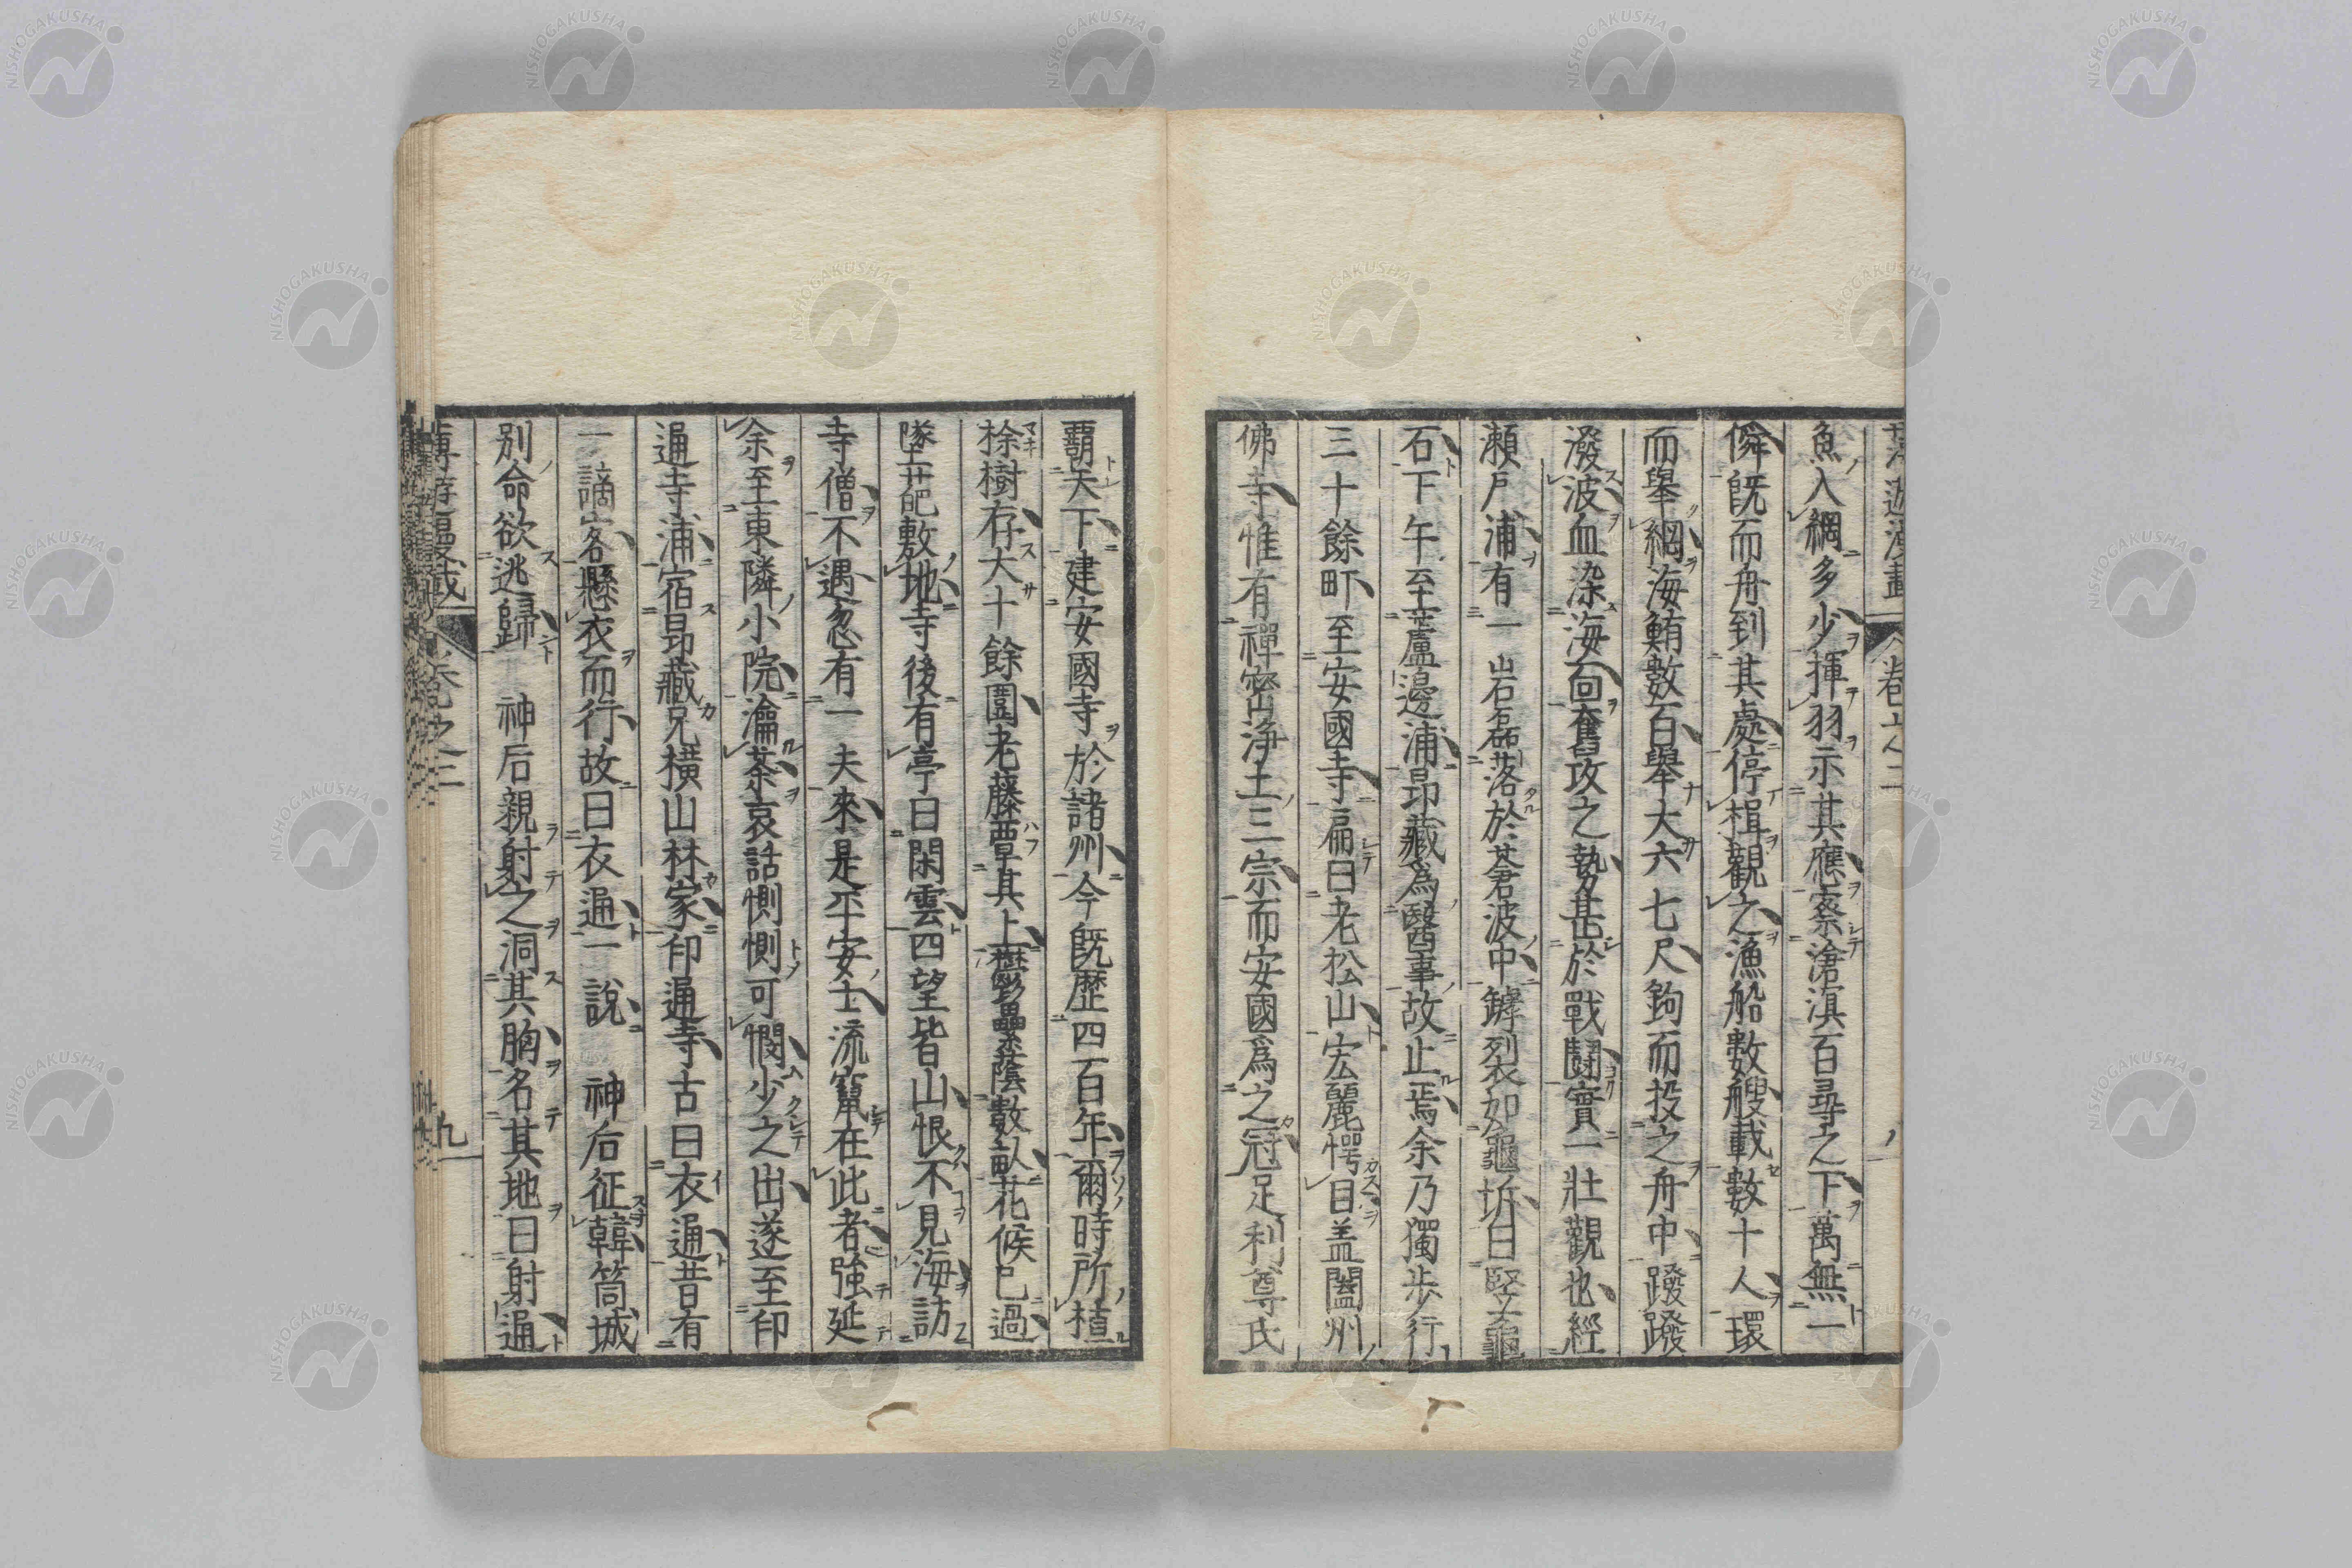 魚入網多少揮羽示其應察滄溟百尋之下萬無一
僢既而舟到其處停楫觀之漁船數艘載數十人環
而擧網海鮪數百擧大六七尺鉤而投之舟中蹳蹳
潑波血染海面奮攻之勢甚於戰鬪實一壯觀也經
瀬戸浦有一岩磊落於蒼波中鏬裂如龜坼曰堅龜
石下午至蘆邊浦昂藏爲醫事故止焉余乃獨步行
三十餘町至安國寺扁曰老松山宏麗愕目盖闔州
佛寺惟有禪密浄土三宗而安國爲之冠足利尊氏
覇天下建安國寺於諸州今既歴四百年爾時所植
梌樹存大十餘圍老藤覃其上欝蟠蔭數畝花候已過
墜葩敷地寺後有亭曰閑雲四望皆山恨不見海訪
寺僧不遇忽有一夫來是平安士流竄在此者強延
余至東隣小院瀹茶哀話惻惻可憫少之出遂至印
通寺浦宿昂藏兄横山林家印通寺古曰衣通昔有
一謫客懸衣而行故曰衣通一説 神后征韓筒城
別命欲逃歸 神后親射之洞其胸名其地曰射通
卷之二
九
NISHOGAKUSHA